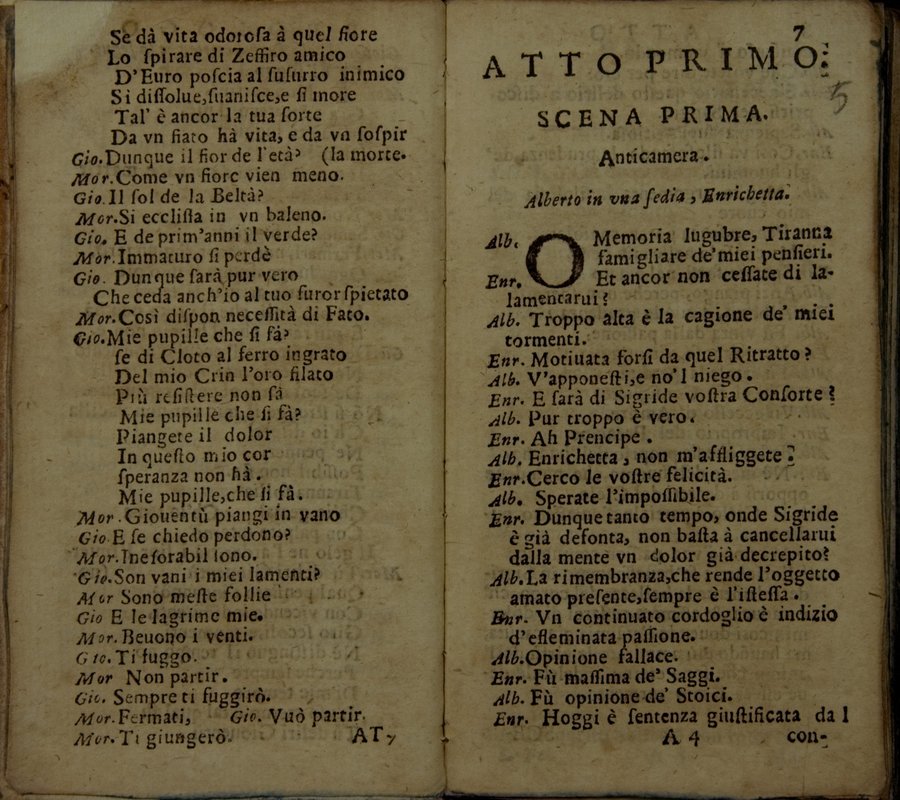 Se dà vita odoroſa à quel fiore
Lo ſpirare di Zeffiro amico
D'Euro poſcia al ſuſurro inimico
Si diſſolue,ſuaniſce,e ſi more
Tal' è ancor la tua ſorte
Da vn fiato hà vita, e da vn ſoſpir
Gio. Dunque il fior de l'età? (la morte.
Mor. Come vn fiore vien meno.
Gio. Il ſol de la Beltà?
Mor. Si eccliſſa in vn baleno.
Gio. E de prim'anni il verde?
Mor. Immaturo ſi perdè
Gio. Dunque ſarà pur vero
Che ceda anch'io al tuo furor ſpietato
Mor. Così diſpon neceſſità di Fato.
Gio. Mie pupille che ſi fà?
ſe di Cloto al ferro ingrato
Del mio Crin l'oro filato
Più reſiſtere non ſà
Mie pupille che ſi fà?
Piangete il dolor
In queſto mio cor
ſperanza non hà.
Mie pupille,che ſi fà.
Mor. Giouentù piangi in vano
Gio E ſe chiedo perdono?
Mor. Ineſorabil ſono.
Gio. Son vani i miei lamenti?
Mor Sono meſte follie
Gio E le lagrime mie.
Mor. Beuono i venti.
Gio. Ti fuggo.
Mor Non partir.
Gio. Sempre ti fuggirò.
Mor. Fermati, Gio. Vuò partir.
Mor. Ti giungerò.
AT
7
5
ATTO PRIMO.
SCENA PRIMA.
Anticamera.
Alberto in vna ſedia, Enrichetta.
Alb. O Memoria lugubre, Tiranna
famigliare de'miei penſieri.
Enr. Et ancor non ceſſate di la-
lamentarui?
Alb. Troppo alta è la cagione de' miei
tormenti.
Enr. Motiuata forſi da quel Ritratto?
Alb. V'apponeſti,e no'l niego.
Enr. E ſarà di Sigride voſtra Conſorte?
Alb. Pur troppo è vero.
Enr. Ah Prencipe.
Alb. Enrichetta, non m'affliggete?
Enr. Cerco le voſtre felicità.
Alb. Sperate l'impoſſibile.
Enr. Dunque tanto tempo, onde Sigride
è già defonta, non baſta à cancellarui
dalla mente vn dolor già decrepito?
Alb. La rimembranza,che rende l'oggetto
amato preſente,ſempre è l'iſteſſa.
Enr. Vn continuato cordoglio è indizio
d'effeminata paſſione.
Alb. Opinione fallace.
Enr. Fù maſſima de' Saggi.
Alb. Fù opinione de' Stoici.
Enr. Hoggi è ſentenza giuſtificata dal
A 4 con-